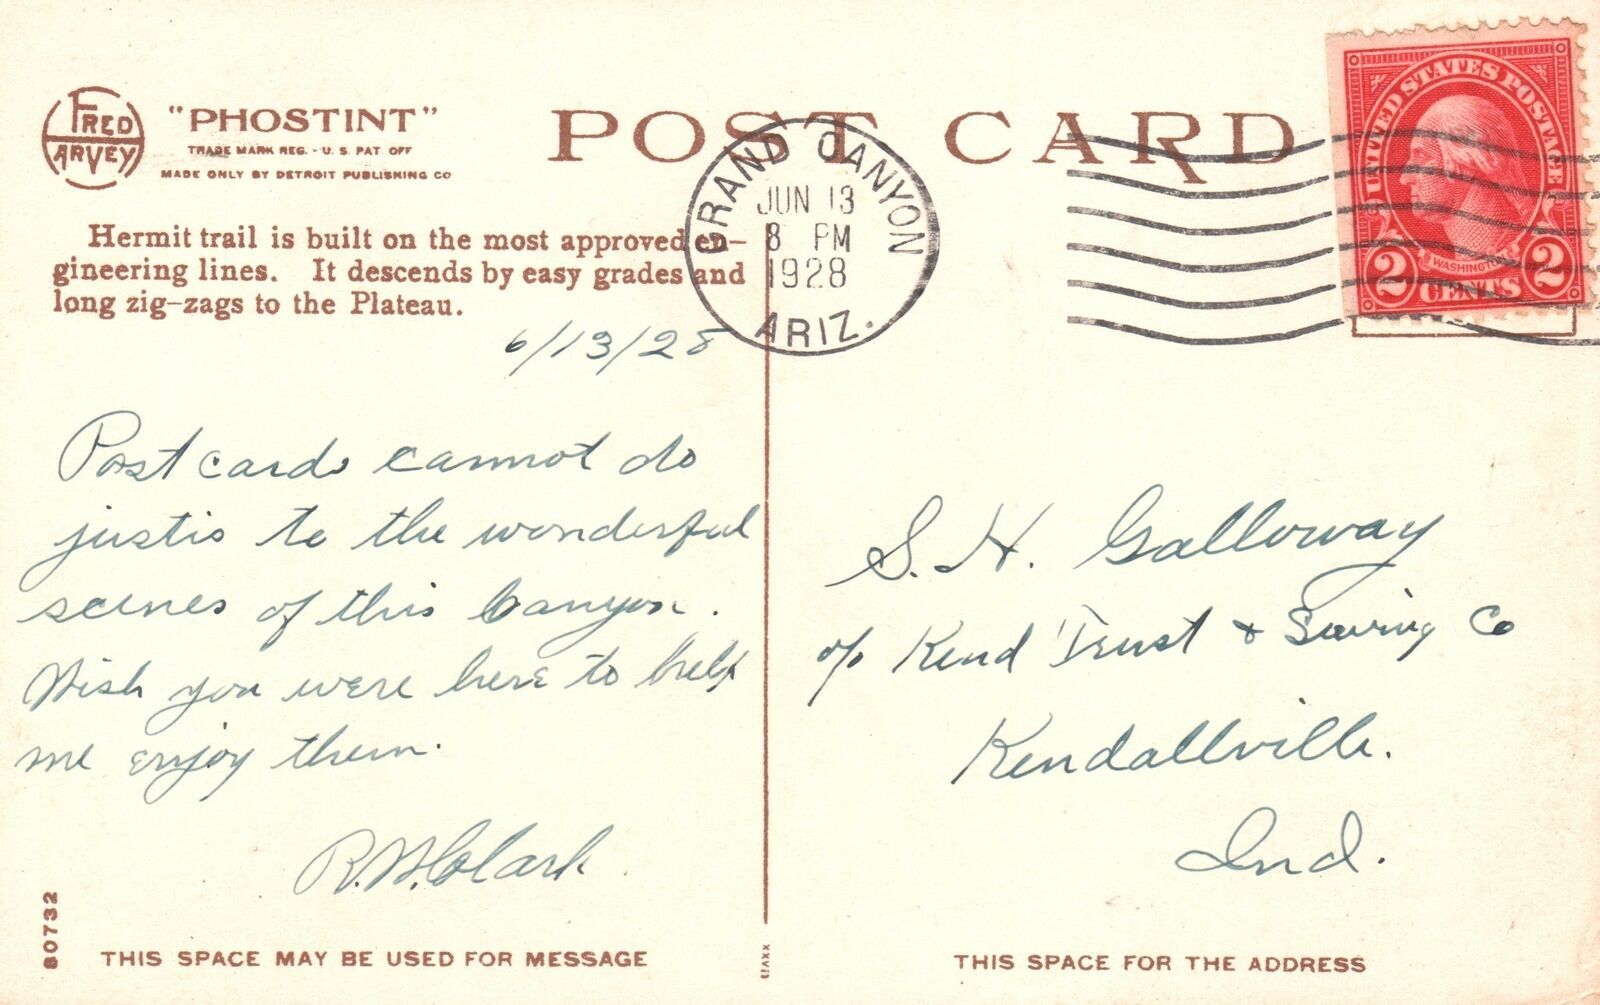 FRED HARVEY
"PHOSTINT"
TRADE MARK REG. - U. S. PAT OFF
MADE ONLY BY DETROIT PUBLISHING CO
POST CARD
Hermit trail is built on the most approved en-
gineering lines. It descends by easy grades and
long zig-zags to the Plateau.
GRAND CANYON
JUN 13
8 PM
1928
ARIZ.
UNITED STATES POSTAGE
WASHINGTON
2 CENTS 2
6/13/28
Post cards cannot do
justis to the wonderful
scenes of this Canyon.
Wish you were here to help
me enjoy them.
Clark
S. H. Galloway
c/o Kend Trust & Saving Co
Kendallville.
Ind.
80732
THIS SPACE MAY BE USED FOR MESSAGE
THIS SPACE FOR THE ADDRESS